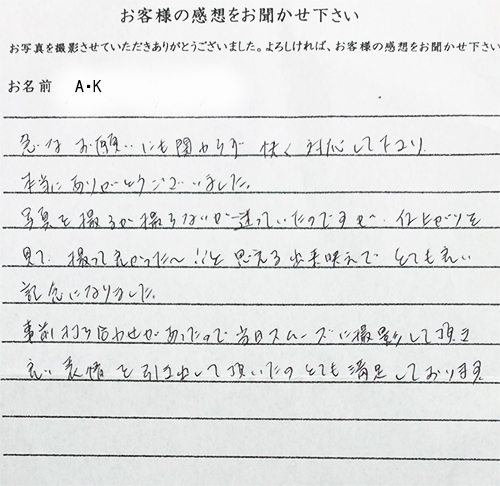 お客様の感想をお聞かせ下さい
お写真を撮影させていただきありがとうございました。よろしければ、お客様の感想をお聞かせ下さい
お名前 A・K
急なお願いにも関わらず 快く 対応して下さり
本当にありがとうございました。
写真を撮るか撮らないか迷っていたのですが、仕上がりを
見て、撮って良かった〜!!と思える出来映えで とても良い
記念になりました。
事前打ち合わせがあったので当日スムーズに撮影して頂き
良い表情を引き出して頂いたのとても満足しております